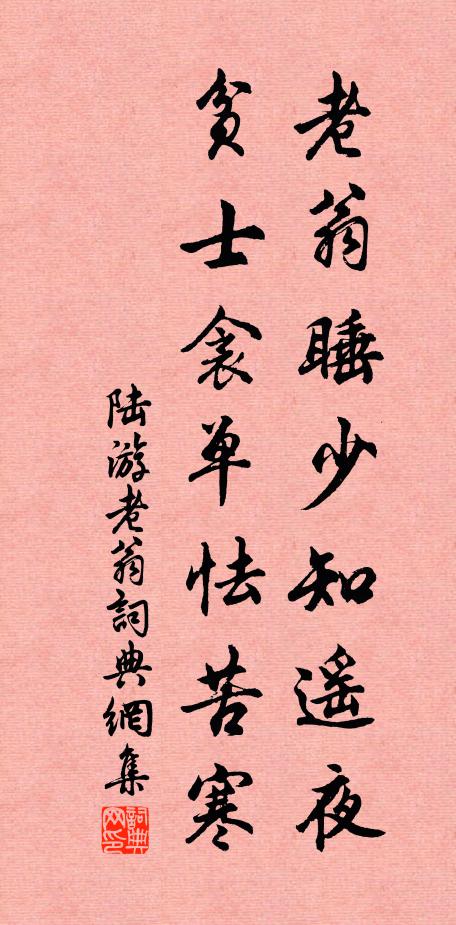 老翁睡少知遥夜
贫士衾单怯苦寒
陆游老翁詞典網集
詞典网印